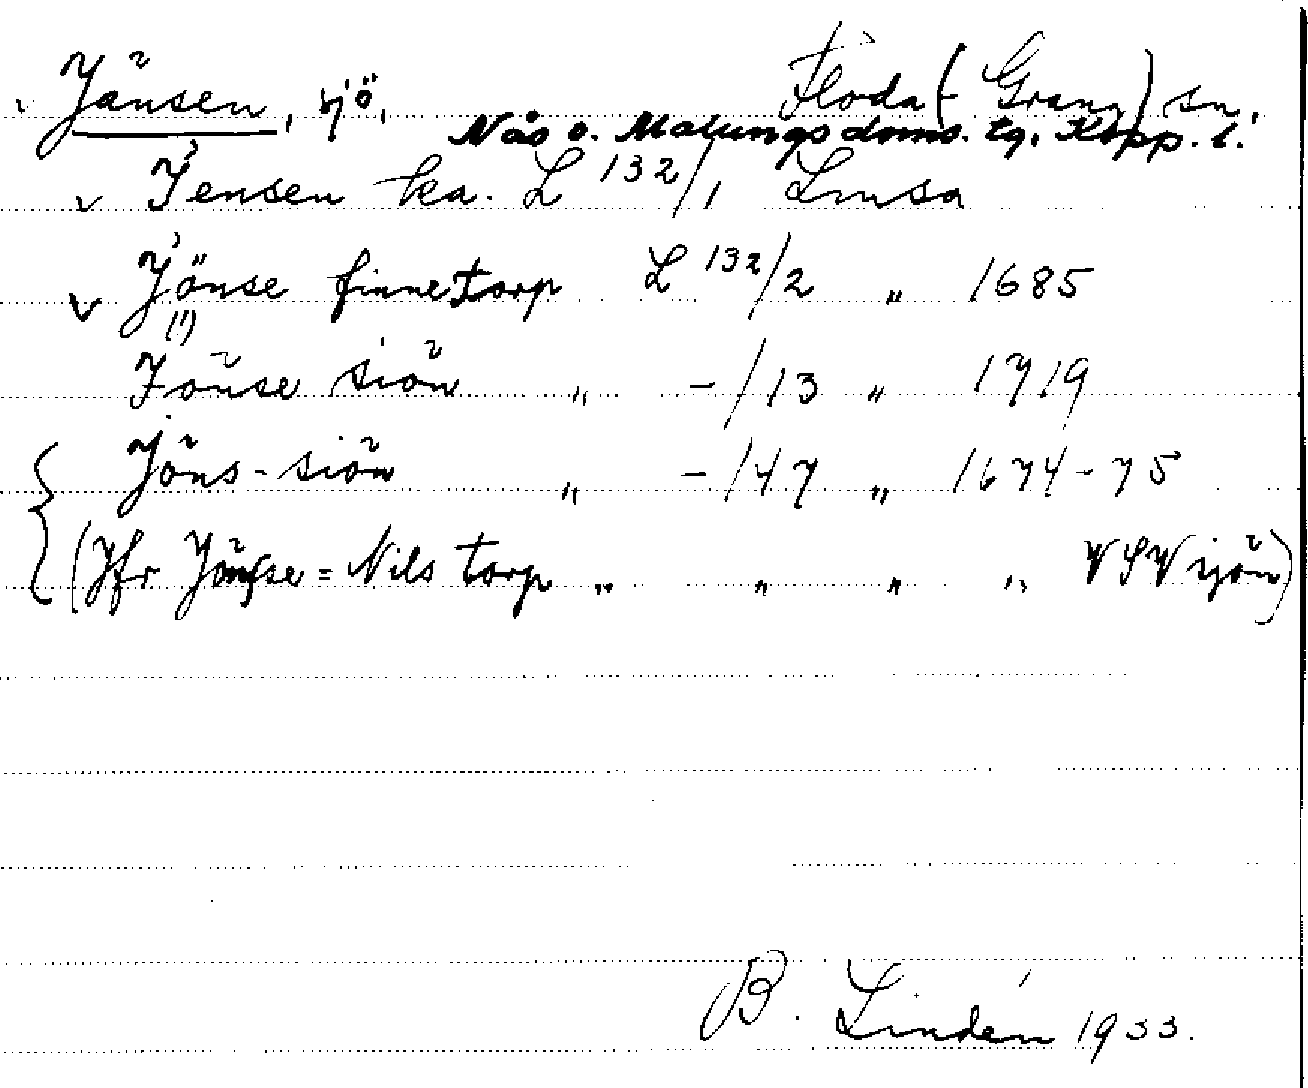 Jänsen, sjö, Floda (- Grang) sn,
Nås o. Malungs doms. tg. Kopp. l.
Jensen ka. L 132/1 Lmsa
Jönse finnetorp L 132/2 " 1685
(!)
Jönse siön " -/13 " 1719
Jöns-siön " -/47 " 1674-75
(Jfr Jönsse = Nils torp " " " " VSV sjön)
B. Lindén 1933.